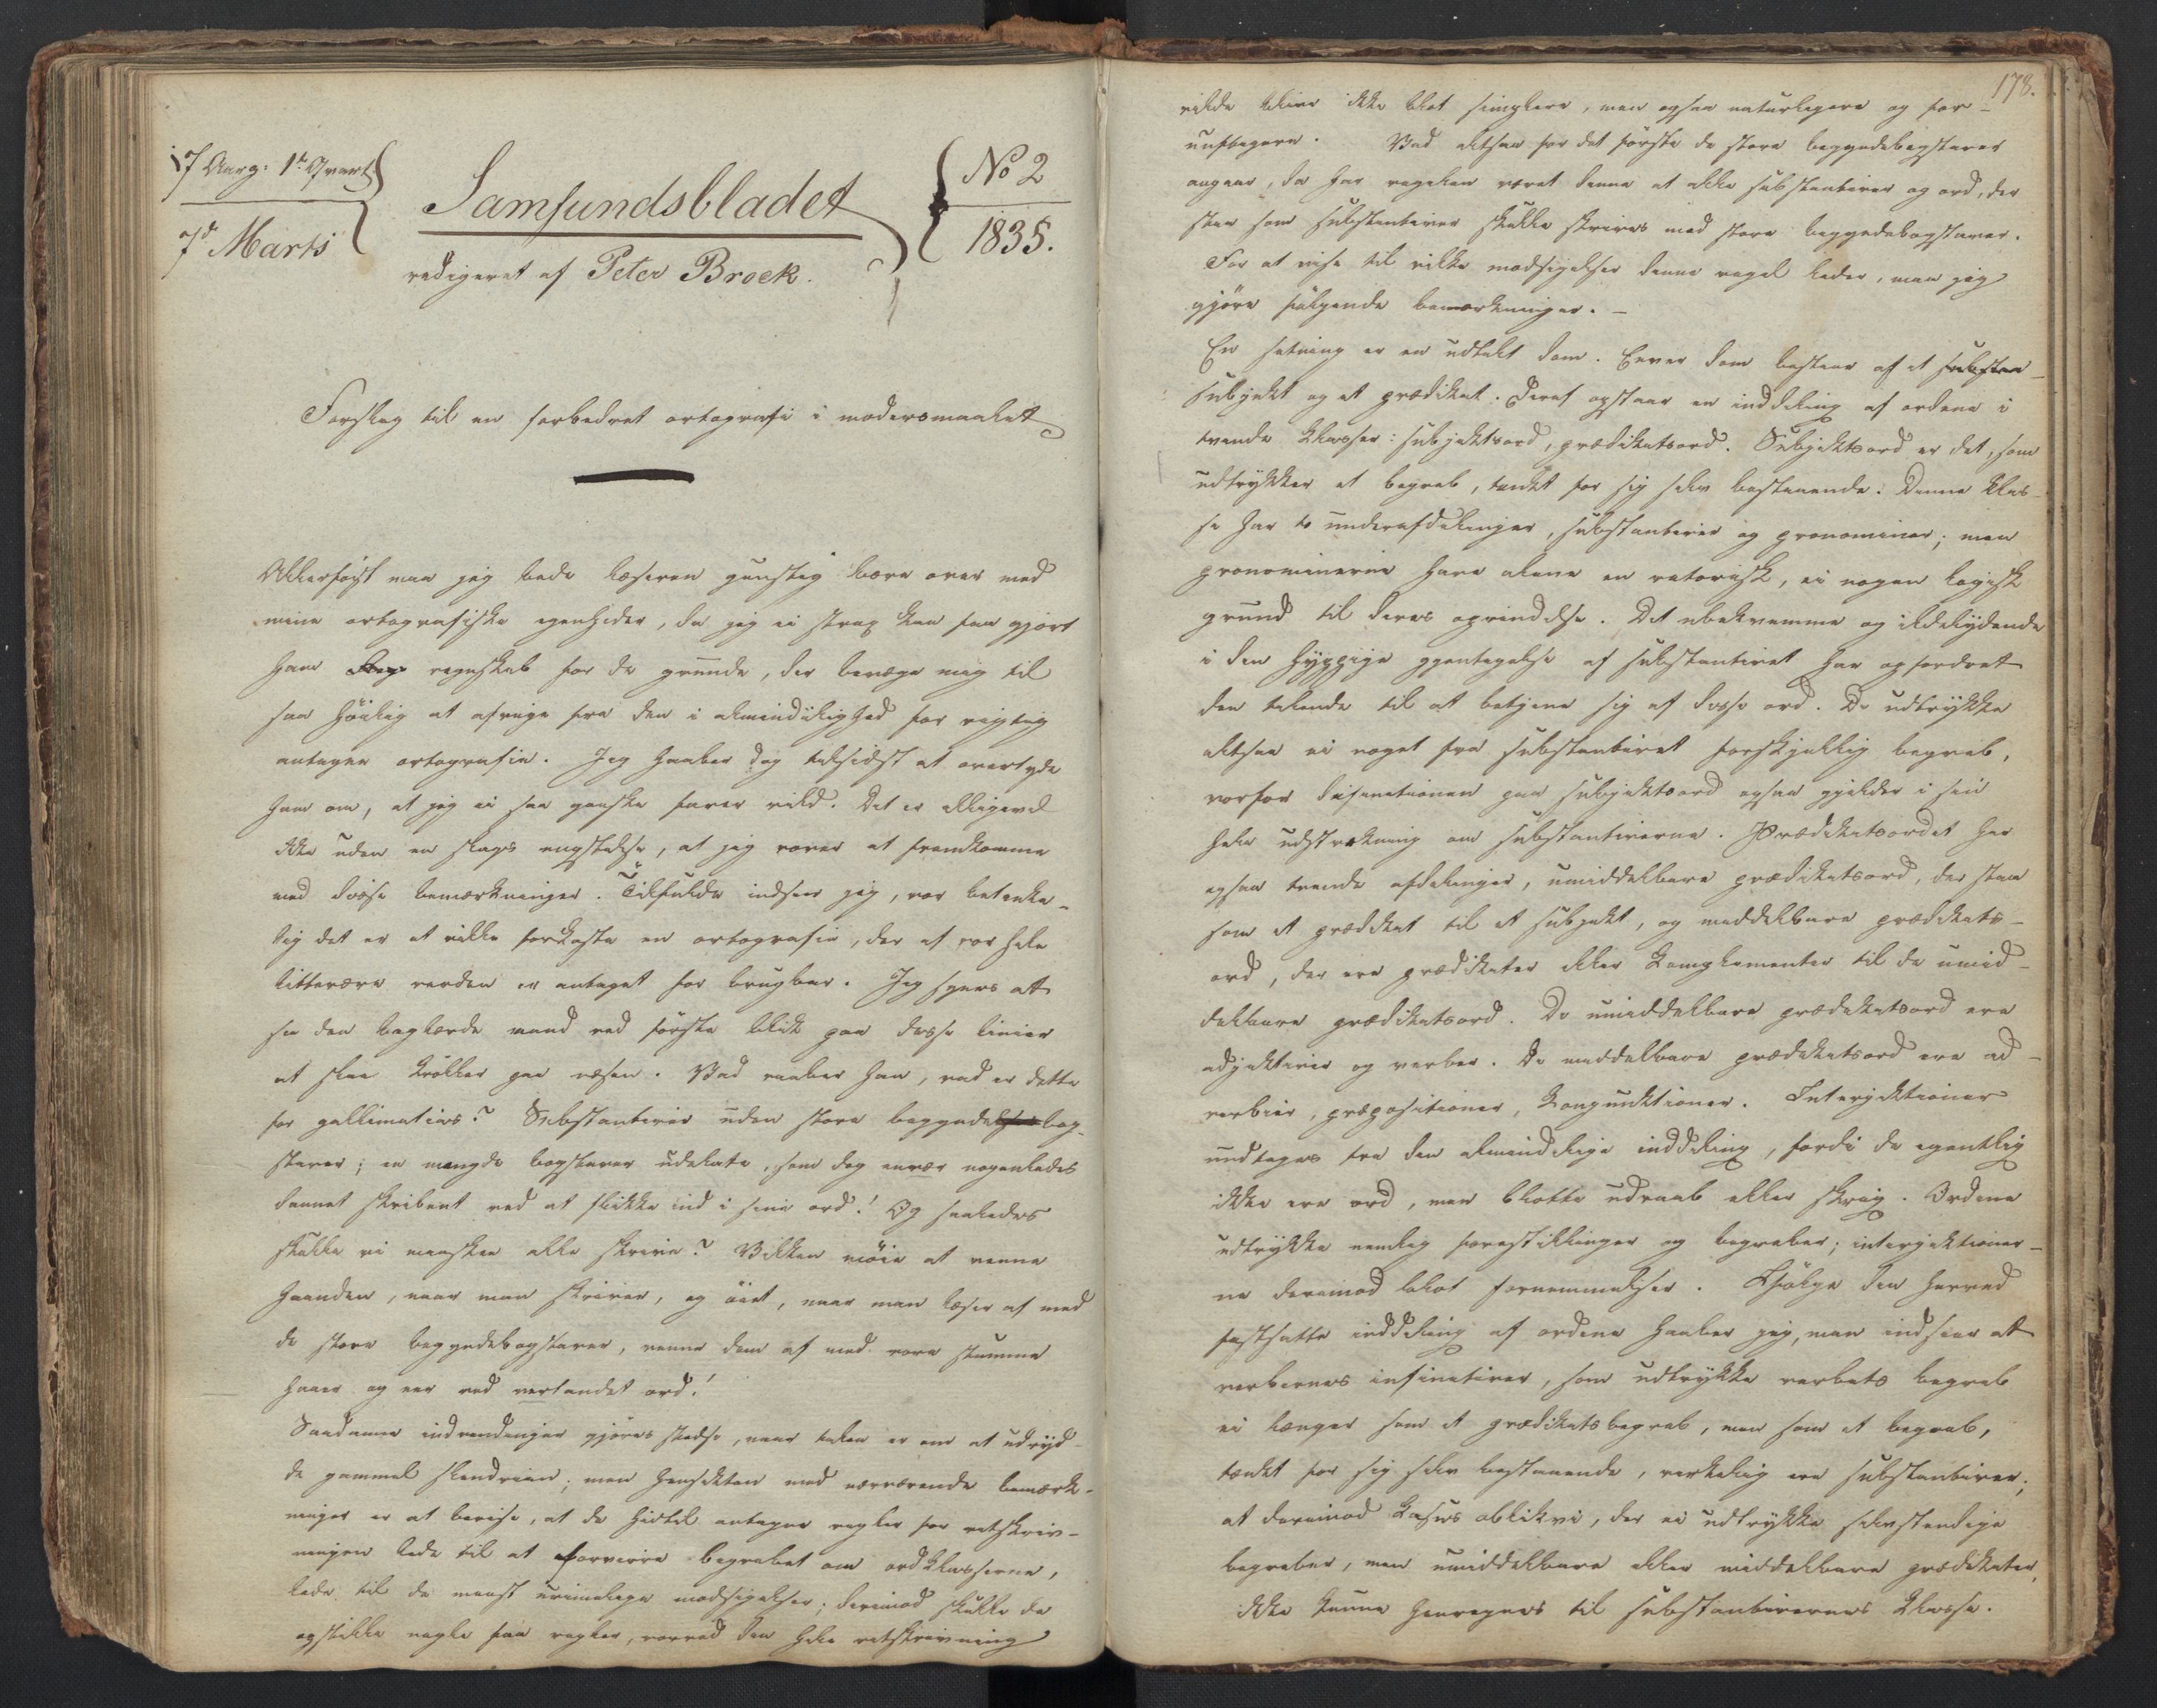 7 Aarg: 1t Qvart
7d Marts
Samfundsbladet
redigeret af Peter Brock.
No 2
1835.
Forslag til en forbedret ortografi i modersmaalet
Allerførst maa jeg bede læseren gunstig bære over med
mine ortografiske egenheder, da jeg ei strax kan faa gjort
ham regnskab for de grunde, der bevæge mig til
saa høilig at afvige fra den i almindelighed for rigtig
antagne ortografie. Jeg haaber dog tilsidst at overtyde
ham om, at jeg ei saa ganske farer vild. Det er alligevel
ikke uden en slags ængstelse, at jeg vover at fremkomme
med disse bemærkninger. Tilfulde indseer jeg, vor betænke-
lig det er at ville forkaste en ortografie, der af vor hele
litterære verden er antaget for brugbar. Jeg synes alt
se den boglærde mand ved første blik paa disse linier
at slaa krøller paa næsen. Vad raaber han, vad er dette
for gallimatias? Substantiver uden store begyndelsesbog-
staver; en mængde bogstaver udelate, som dog enver nogenledes
dannet skribent ved at flikke ind i sine ord! Og saaledes
skulle vi mansken alle skrive? Vilken møie at venne
haanden, naar man skriver, og øiet, naar man læser af med
de store begyndebogstaver, venne dem af med vore stumme
haaer og eer ved vertandet ord!
Saadanne indvendinger gjøres stedse, naar talen er om at udryd-
de gammel slendrian; men hensikten med nærværende bemærk-
ninger er at bevise, at de hidtil antagne regler for retskriv-
ningen lede til at forvirre begrebet om ordklasserne,
lede til de meest urimelige modsigelser; derimod skulle de
opstille nogle faa regler, vorved den hele retskrivning
178.
vilde blive ikke blot simplere, men ogsaa naturligere og for-
nuftigere. Vad altsaa for det første de store begyndebogstaver
angaar, da har regelen været denne at alle substantiver og ord, der
staa som substantiver skulle skrives med store begyndebogstaver.
For at vise til vilke modsigelser denne regel leder, maa jeg
gjøre følgende bemærkninger. -
En sætning er en udtalt dom. Enver dom bestaar af et substan-
subjekt og et prædikat. Deraf opstaar en inddeling af ordene i
tvende klasser: subjektsord, prædikatsord. Subjektsord er det, som
udtrykker et begreb, tænkt for sig selv bestaaende. Denne klas-
se har to underafdelinger, substantiver og pronominer; men
pronominerne have alene en retorisk, ei nogen logisk
grund til deres oprindelse. Det ubekvemme og ildelydende
i den hyppige gjentagelse af substantivet har opfordret
den talende til at betjene sig af disse ord. De udtrykke
altsaa ei noget fra substantivet forskjellig begreb,
vorfor definitionen paa subjektsord ogsaa gjælder i sin
hele udstrækning om substantiverne. Prædikatsordet har
ogsaa tvende afdelinger, umiddelbare prædikatsord, der staa
som et prædikat til et subjekt, og middelbare prædikats-
ord, der ere prædikater eller komplementer til de umid-
delbare prædikatsord. De umiddelbare prædikatsord ere
adjektiver og verber. De middelbare prædikatsord ere ad-
verbier, præpositioner, konjunktioner. Interjektioner
undtages fra den almindelige inddeling, fordi de egentlig
ikke ere ord, men blotte udraab eller skrig. Ordene
udtrykke nemlig forestillinger og begreber; interjektioner-
ne derimod blot fornemmelser. Ifølge den herved
fastsatte inddeling af ordene haaber jeg, man indseer at
verbernes infinitiver, som udtrykke verbets begreb
ei længer som et prædikatsbegreb, men som et begreb,
tænkt for sig selv bestaaende, virkelig ere substantiver;
at derimod kasus oblikvi, der ei udtrykke selvstendige
begreber, men umiddelbare eller middelbare prædikater,
ikke kunne henregnes til substantivernes klasse.